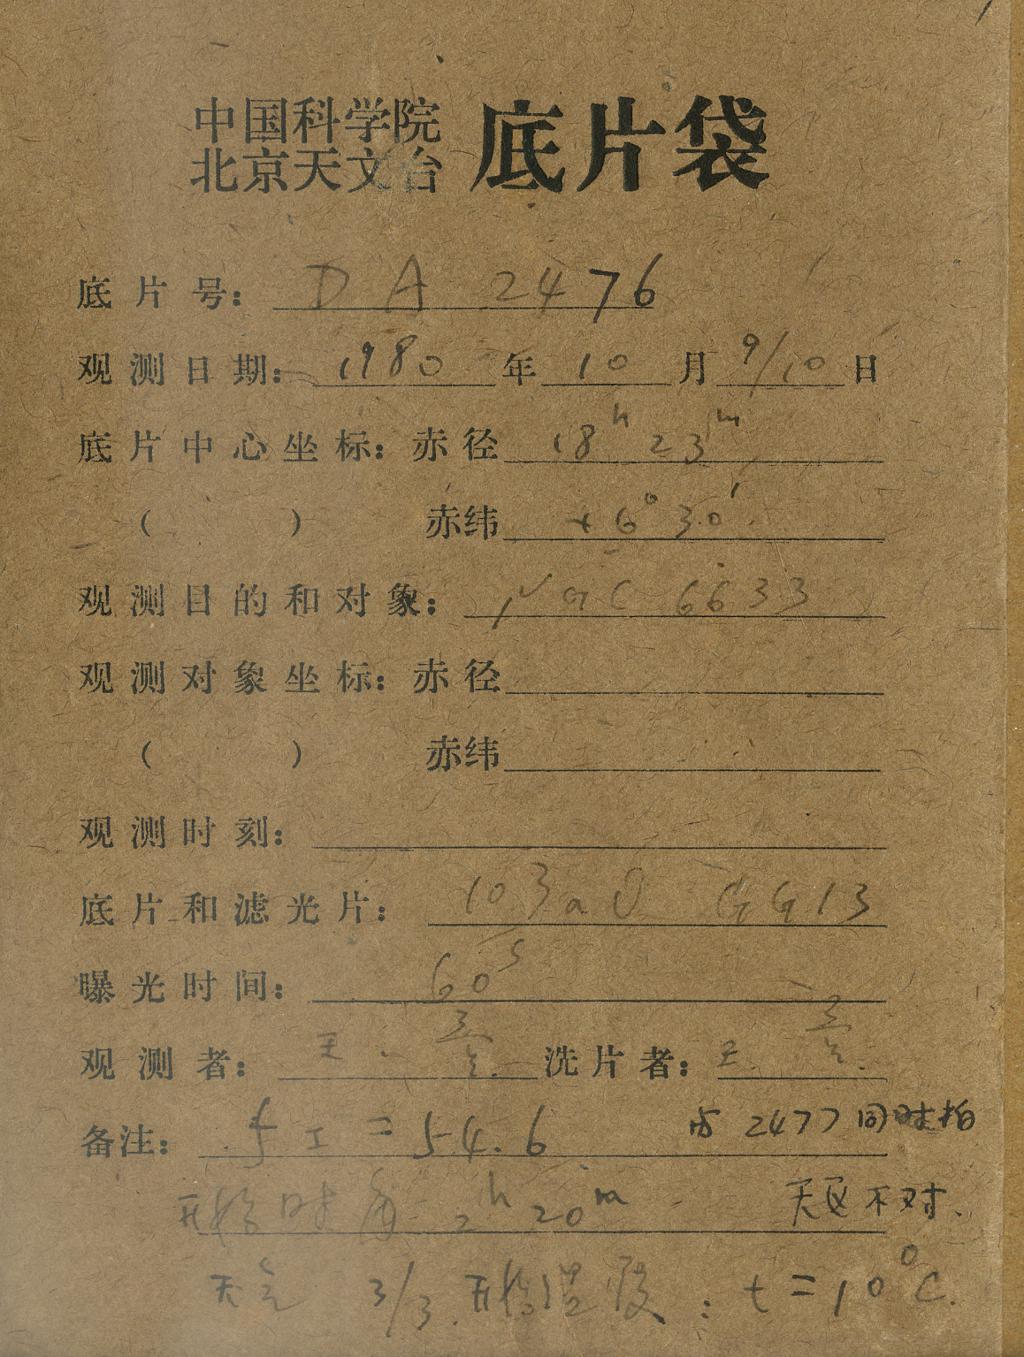 中国科学院
北京天文台 底片袋
底片号: DA 2476
观测日期: 1980年10月9/10日
底片中心坐标: 赤径 18h 23m
( ) 赤纬 +6° 30′
观测目的和对象: NGC 6633
观测对象坐标: 赤径
( ) 赤纬
观测时刻:
底片和滤光片: 103aO GG13
曝光时间: 60s
观测者: 王 洗片者: 王
备注: f = 54.6 与 2477 同时拍
开始时角 2h 20m 天区不对.
天气 3/3. 开始温度: t = 10°C.